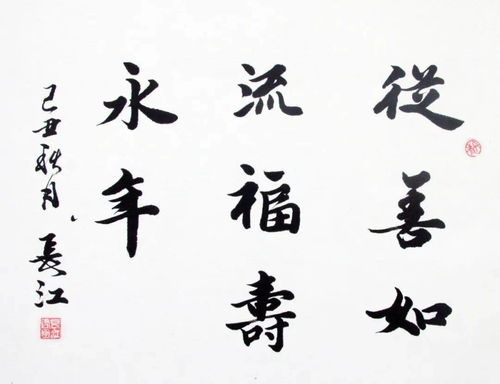 從善如
流福壽
永年
己丑秋月
長江